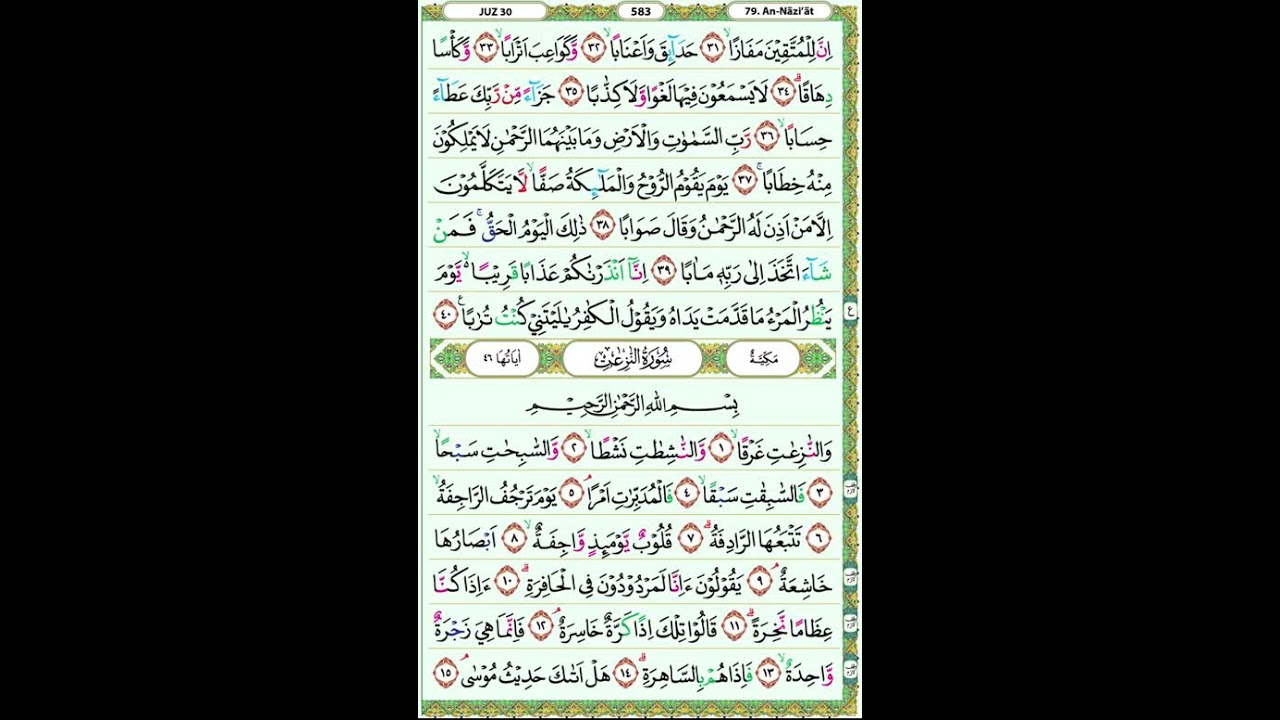 JUZ 30 583 79. An-Nāzi’āt
اِنَّ لِلْمُتَّقِيْنَ مَفَازًاۙ ٣١ حَدَاۤىِٕقَ وَاَعْنَابًاۙ ٣٢ وَّكَوَاعِبَ اَتْرَابًاۙ ٣٣ وَّكَأْسًا
دِهَاقًاۗ ٣٤ لَا يَسْمَعُوْنَ فِيْهَا لَغْوًا وَّلَا كِذّٰبًا ٣٥ جَزَاۤءً مِّنْ رَّبِّكَ عَطَاۤءً
حِسَابًاۙ ٣٦ رَّبِّ السَّمٰوٰتِ وَالْاَرْضِ وَمَا بَيْنَهُمَا الرَّحْمٰنِ لَا يَمْلِكُوْنَ
مِنْهُ خِطَابًاۚ ٣٧ يَوْمَ يَقُوْمُ الرُّوْحُ وَالْمَلٰۤىِٕكَةُ صَفًّاۙ لَّا يَتَكَلَّمُوْنَ
اِلَّا مَنْ اَذِنَ لَهُ الرَّحْمٰنُ وَقَالَ صَوَابًا ٣٨ ذٰلِكَ الْيَوْمُ الْحَقُّۚ فَمَنْ
شَاۤءَ اتَّخَذَ اِلٰى رَبِّهٖ مَاٰبًا ٣٩ اِنَّآ اَنْذَرْنٰكُمْ عَذَابًا قَرِيْبًا ەۙ يَّوْمَ
يَنْظُرُ الْمَرْءُ مَا قَدَّمَتْ يَدَاهُ وَيَقُوْلُ الْكٰفِرُ يٰلَيْتَنِيْ كُنْتُ تُرٰبًاࣖ ٤٠
ع
مَكِّيَّةٌ سُوْرَةُ النّٰزِعٰتِ اٰيَاتُهَا ٤٦
بِسْمِ اللّٰهِ الرَّحْمٰنِ الرَّحِيْمِ
وَالنّٰزِعٰتِ غَرْقًاۙ ١ وَّالنّٰشِطٰتِ نَشْطًاۙ ٢ وَّالسّٰبِحٰتِ سَبْحًاۙ
٣ فَالسّٰبِقٰتِ سَبْقًاۙ ٤ فَالْمُدَبِّرٰتِ اَمْرًاۘ ٥ يَوْمَ تَرْجُفُ الرَّاجِفَةُۙ
٦ تَتْبَعُهَا الرَّادِفَةُۗ ٧ قُلُوْبٌ يَّوْمَىِٕذٍ وَّاجِفَةٌۙ ٨ اَبْصَارُهَا
خَاشِعَةٌۘ ٩ يَقُوْلُوْنَ ءَاِنَّا لَمَرْدُوْدُوْنَ فِى الْحَافِرَةِۗ ١٠ ءَاِذَا كُنَّا
عِظَامًا نَّخِرَةًۗ ١١ قَالُوْا تِلْكَ اِذًا كَرَّةٌ خَاسِرَةٌۘ ١٢ فَاِنَّمَا هِيَ زَجْرَةٌ
وَّاحِدَةٌۙ ١٣ فَاِذَا هُمْ بِالسَّاهِرَةِۗ ١٤ هَلْ اَتٰىكَ حَدِيْثُ مُوْسٰىۘ ١٥